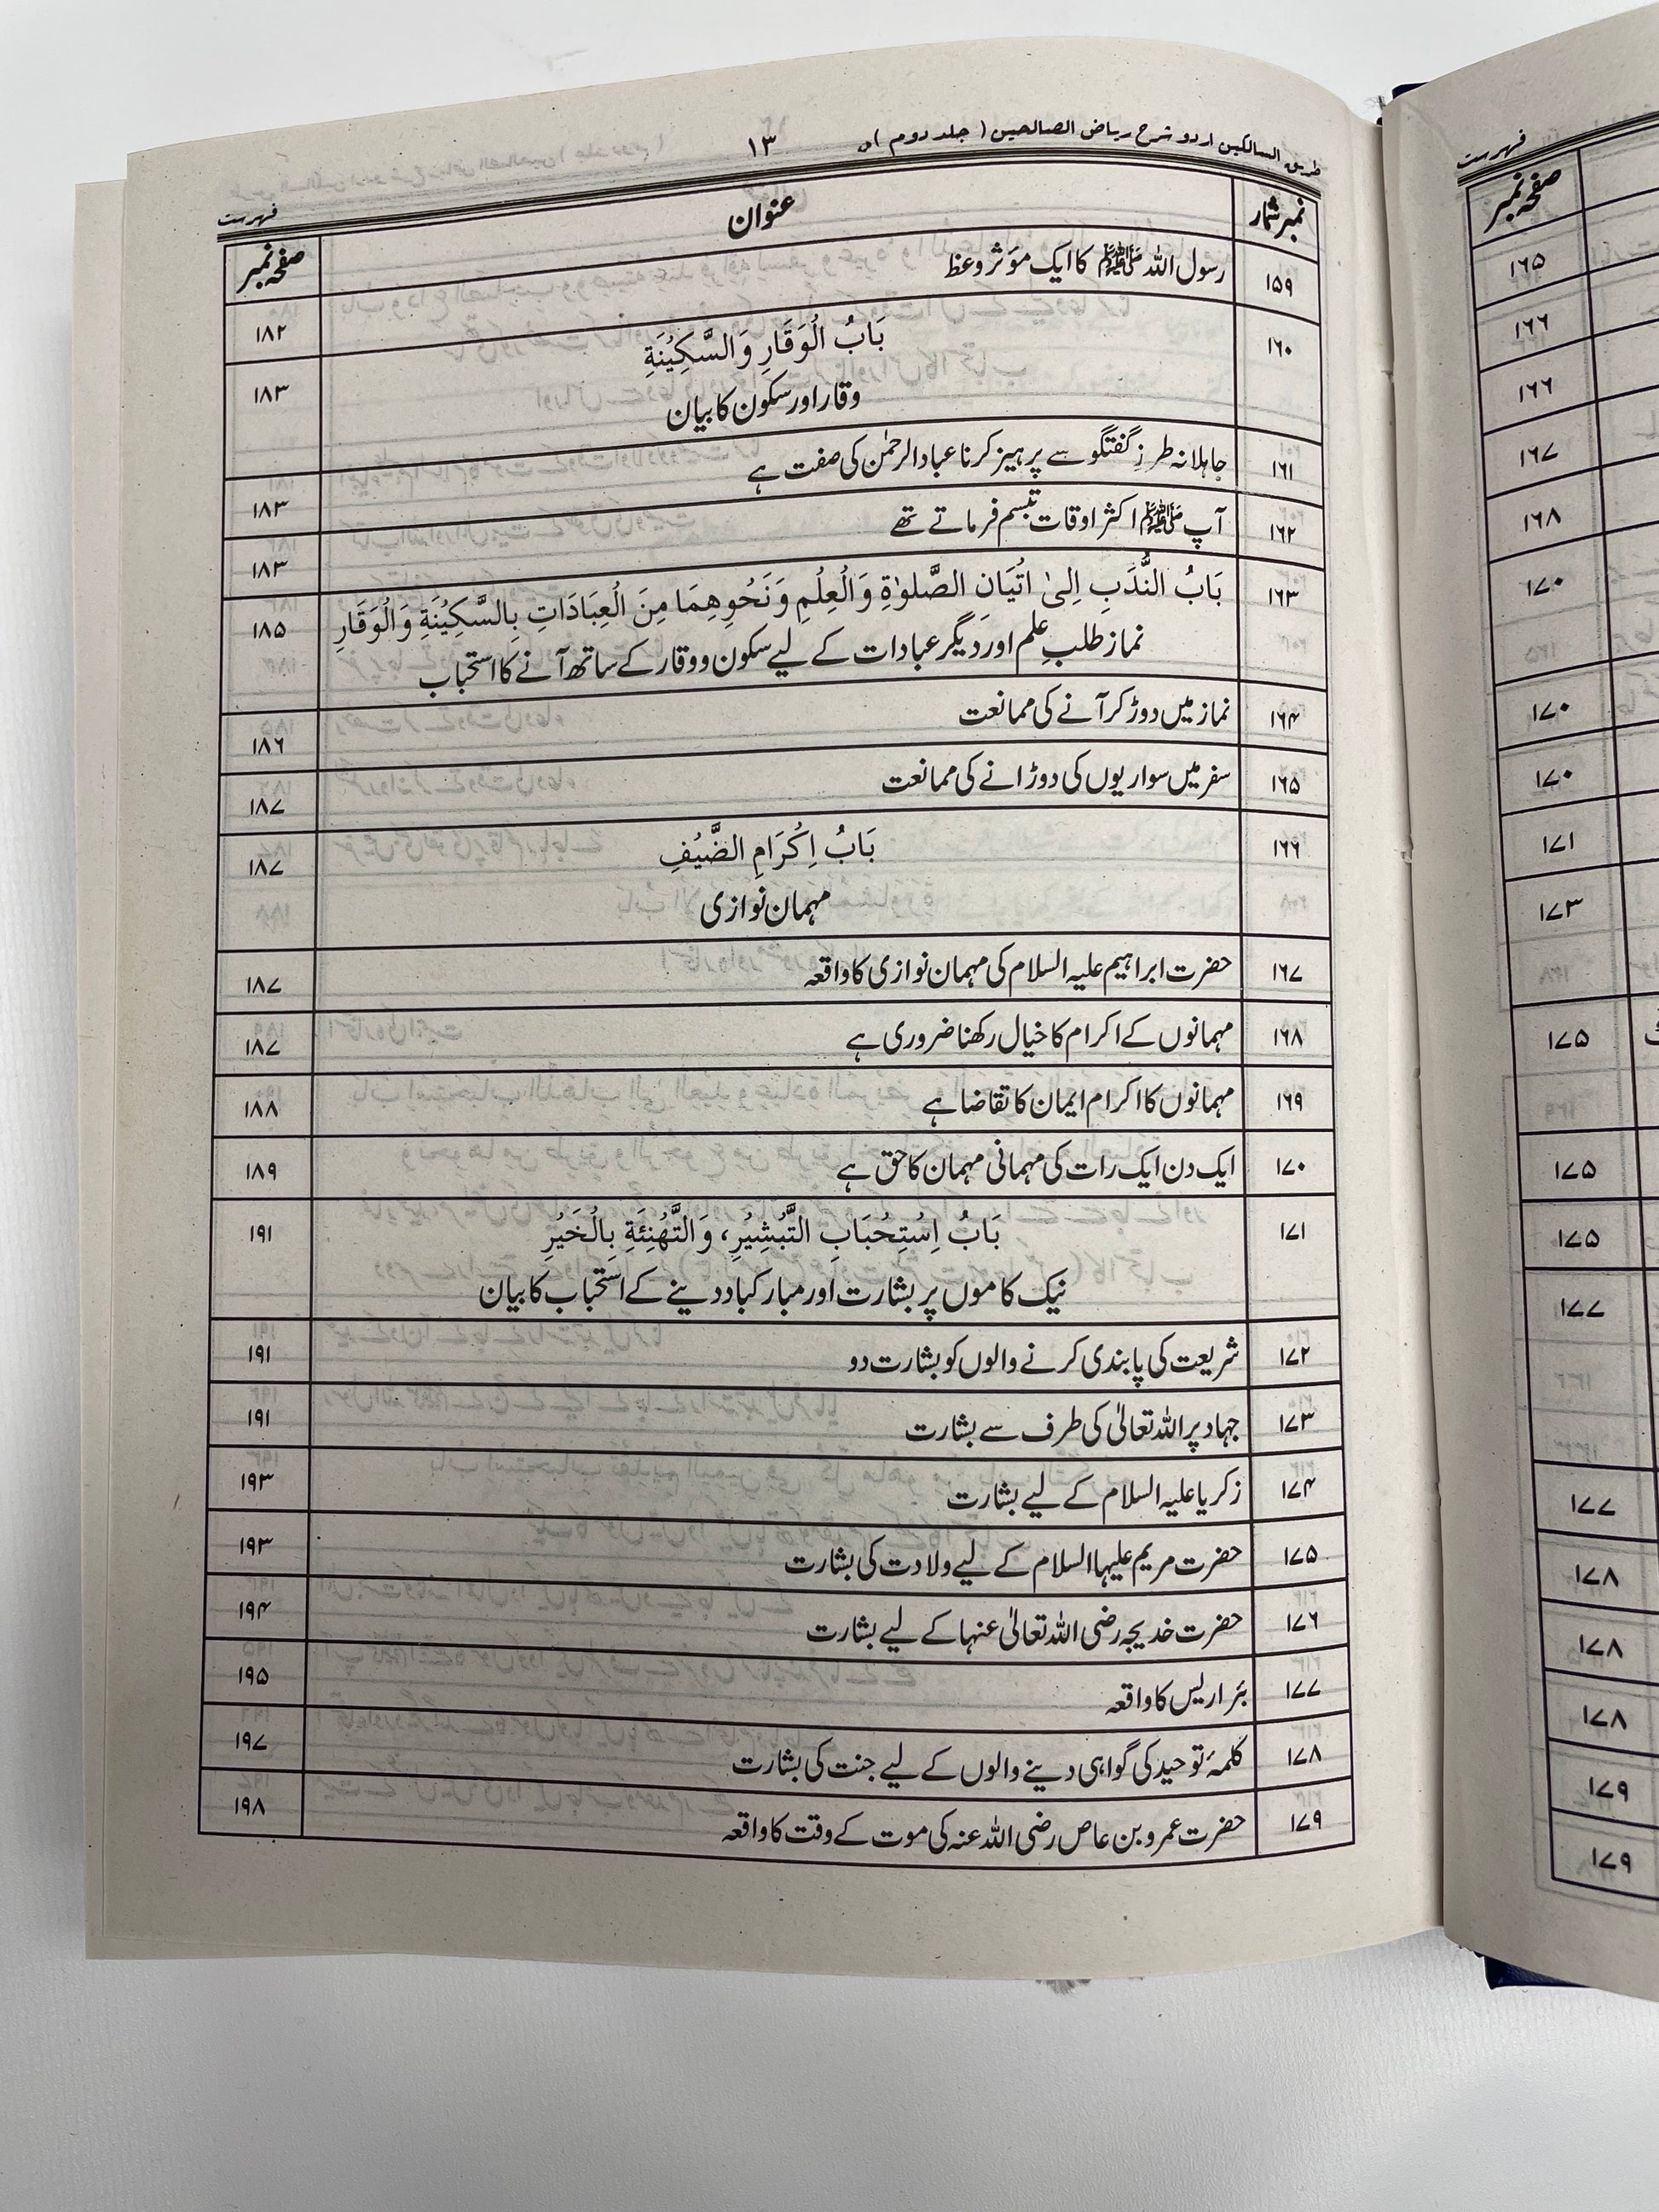 طریق السالکین اردو شرح ریاض الصالحین (جلد دوم) ۱۳ فہرست
نمبر شمار عنوان صفحہ نمبر
۱۵۹ رسول اللہ ﷺ کا ایک مؤثر وعظ ۱۸۲
۱۶۰ بَابُ الْوَقَارِ وَالسَّكِيْنَةِ ۱۸۳
وقار اور سکون کا بیان
۱۶۱ جاہلانہ طرزِ گفتگو سے پرہیز کرنا عباد الرحمٰن کی صفت ہے ۱۸۳
۱۶۲ آپ ﷺ اکثر اوقات تبسم فرماتے تھے ۱۸۳
۱۶۳ بَابُ النُّدَبِ اِلیٰ اتْيَان الصَّلوٰةِ وَالْعِلْمِ وَنَحْوِهِمَا مِنَ الْعِبَادَاتِ بِالسَّكِيْنَةِ وَالْوَقَارِ ۱۸۵
نماز طلبِ علم اور دیگر عبادات کے لیے سکون و وقار کے ساتھ آنے کا استحباب
۱۶۴ نماز میں دوڑ کر آنے کی ممانعت ۱۸۶
۱۶۵ سفر میں سواریوں کی دوڑانے کی ممانعت ۱۸۷
۱۶۶ بَابُ اِكْرَامِ الضَّيْفِ ۱۸۷
مہمان نوازی
۱۶۷ حضرت ابراہیم علیہ السلام کی مہمان نوازی کا واقعہ ۱۸۷
۱۶۸ مہمانوں کے اکرام کا خیال رکھنا ضروری ہے ۱۸۷
۱۶۹ مہمانوں کا اکرام ایمان کا تقاضا ہے ۱۸۸
۱۷۰ ایک دن ایک رات کی مہمانی مہمان کا حق ہے ۱۸۹
۱۷۱ بَابُ اِسْتِحْبَابِ التَّبْشِيْرِ، وَالتَّهْنِئَةِ بِالْخَيْرِ ۱۹۱
نیک کاموں پر بشارت اور مبارکباد دینے کے استحباب کا بیان
۱۷۲ شریعت کی پابندی کرنے والوں کو بشارت دو ۱۹۱
۱۷۳ جہاد پر اللہ تعالیٰ کی طرف سے بشارت ۱۹۱
۱۷۴ زکریا علیہ السلام کے لیے بشارت ۱۹۳
۱۷۵ حضرت مریم علیہا السلام کے لیے ولادت کی بشارت ۱۹۳
۱۷۶ حضرت خدیجہ رضی اللہ تعالیٰ عنہا کے لیے بشارت ۱۹۴
۱۷۷ بئر اریس کا واقعہ ۱۹۵
۱۷۸ کلمۂ توحید کی گواہی دینے والوں کے لیے جنت کی بشارت ۱۹۷
۱۷۹ حضرت عمرو بن عاص رضی اللہ عنہ کی موت کے وقت کا واقعہ ۱۹۸
فہرست
صفحہ نمبر
۱۶۵
۱۶۶
۱۶۶
۱۶۷
۱۶۸
۱۷۰
۱۷۰
۱۷۰
۱۷۱
۱۷۳
۱۷۵
۱۷۵
۱۷۵
۱۷۷
۱۷۷
۱۷۸
۱۷۸
۱۷۸
۱۷۹
۱۷۹